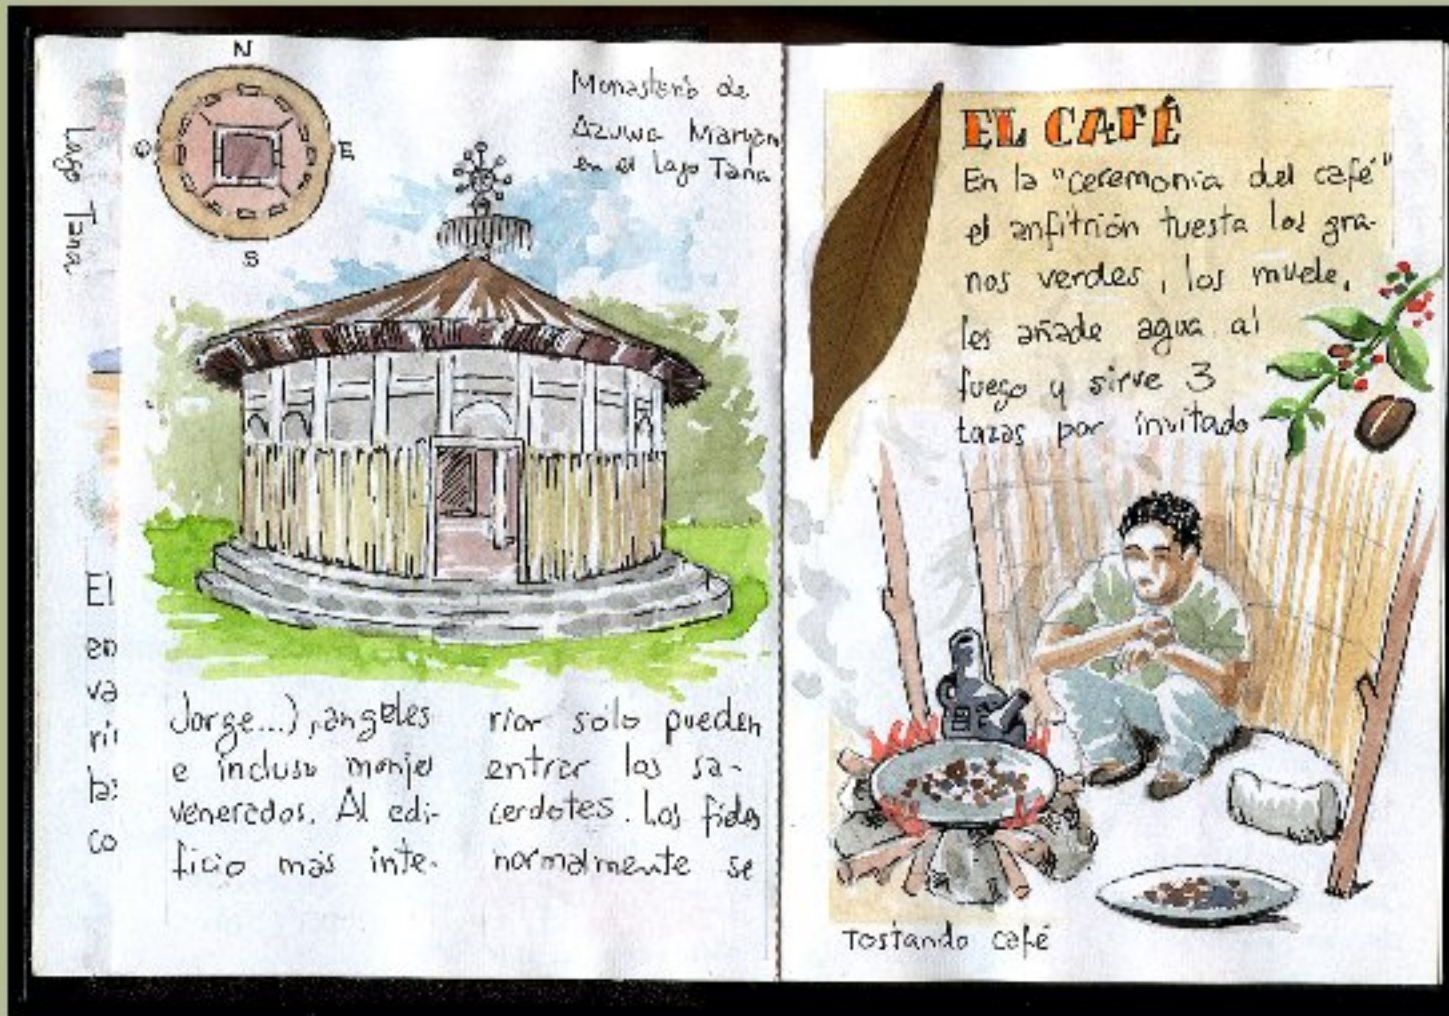 Lago Tana
El
en
va
co
N
O
E
S
Monasterio de
Azuwa Maryam
en el lago Tana
Jorge...), angeles
e incluso monjes
venerados. Al edi-
ficio más inte-
rior sólo pueden
entrar los sa-
cerdotes. Los fieles
normalmente se
EL CAFÉ
En la "ceremonia del café"
el anfitrión tuesta los gra-
nos verdes, los muele,
les añade agua al
fuego y sirve 3
tazas por invitado
Tostando café